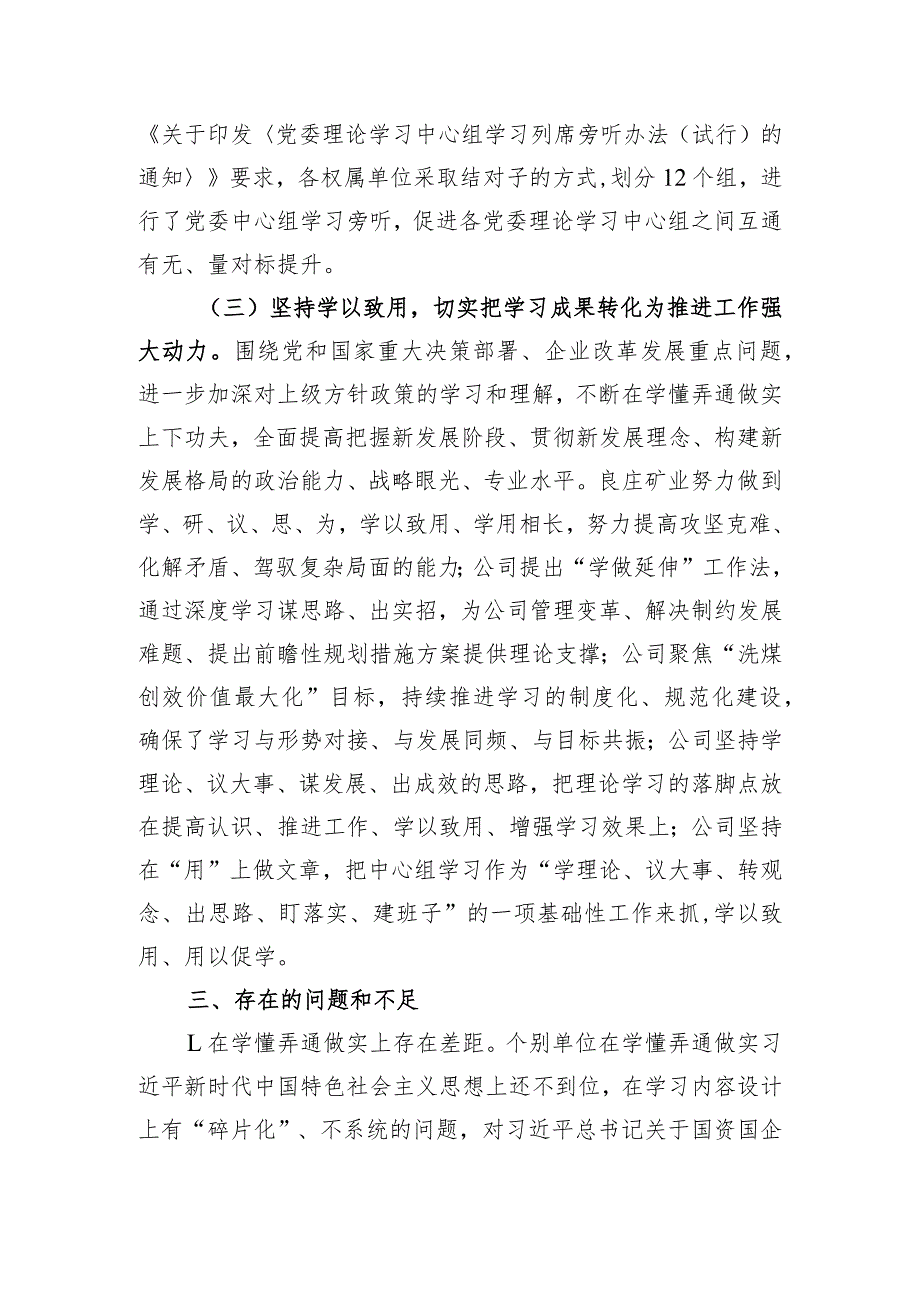 《关于印发〈党委理论学习中心组学习列席旁听办法（试行）的
通知〉》要求，各权属单位采取结对子的方式,划分12个组，进
行了党委中心组学习旁听，促进各党委理论学习中心组之间互通
有无、量对标提升。
（三）坚持学以致用，切实把学习成果转化为推进工作强
大动力。围绕党和国家重大决策部署、企业改革发展重点问题，
进一步加深对上级方针政策的学习和理解，不断在学懂弄通做实
上下功夫，全面提高把握新发展阶段、贯彻新发展理念、构建新
发展格局的政治能力、战略眼光、专业水平。良庄矿业努力做到
学、研、议、思、为，学以致用、学用相长，努力提高攻坚克难、
化解矛盾、驾驭复杂局面的能力；公司提出“学做延伸”工作法，
通过深度学习谋思路、出实招，为公司管理变革、解决制约发展
难题、提出前瞻性规划措施方案提供理论支撑；公司聚焦“洗煤
创效价值最大化”目标，持续推进学习的制度化、规范化建设，
确保了学习与形势对接、与发展同频、与目标共振；公司坚持学
理论、议大事、谋发展、出成效的思路，把理论学习的落脚点放
在提高认识、推进工作、学以致用、增强学习效果上；公司坚持
在“用”上做文章，把中心组学习作为“学理论、议大事、转观
念、出思路、盯落实、建班子”的一项基础性工作来抓,学以致
用、用以促学。
三、存在的问题和不足
L在学懂弄通做实上存在差距。个别单位在学懂弄通做实习
近平新时代中国特色社会主义思想上还不到位，在学习内容设计
上有“碎片化”、不系统的问题，对习近平总书记关于国资国企